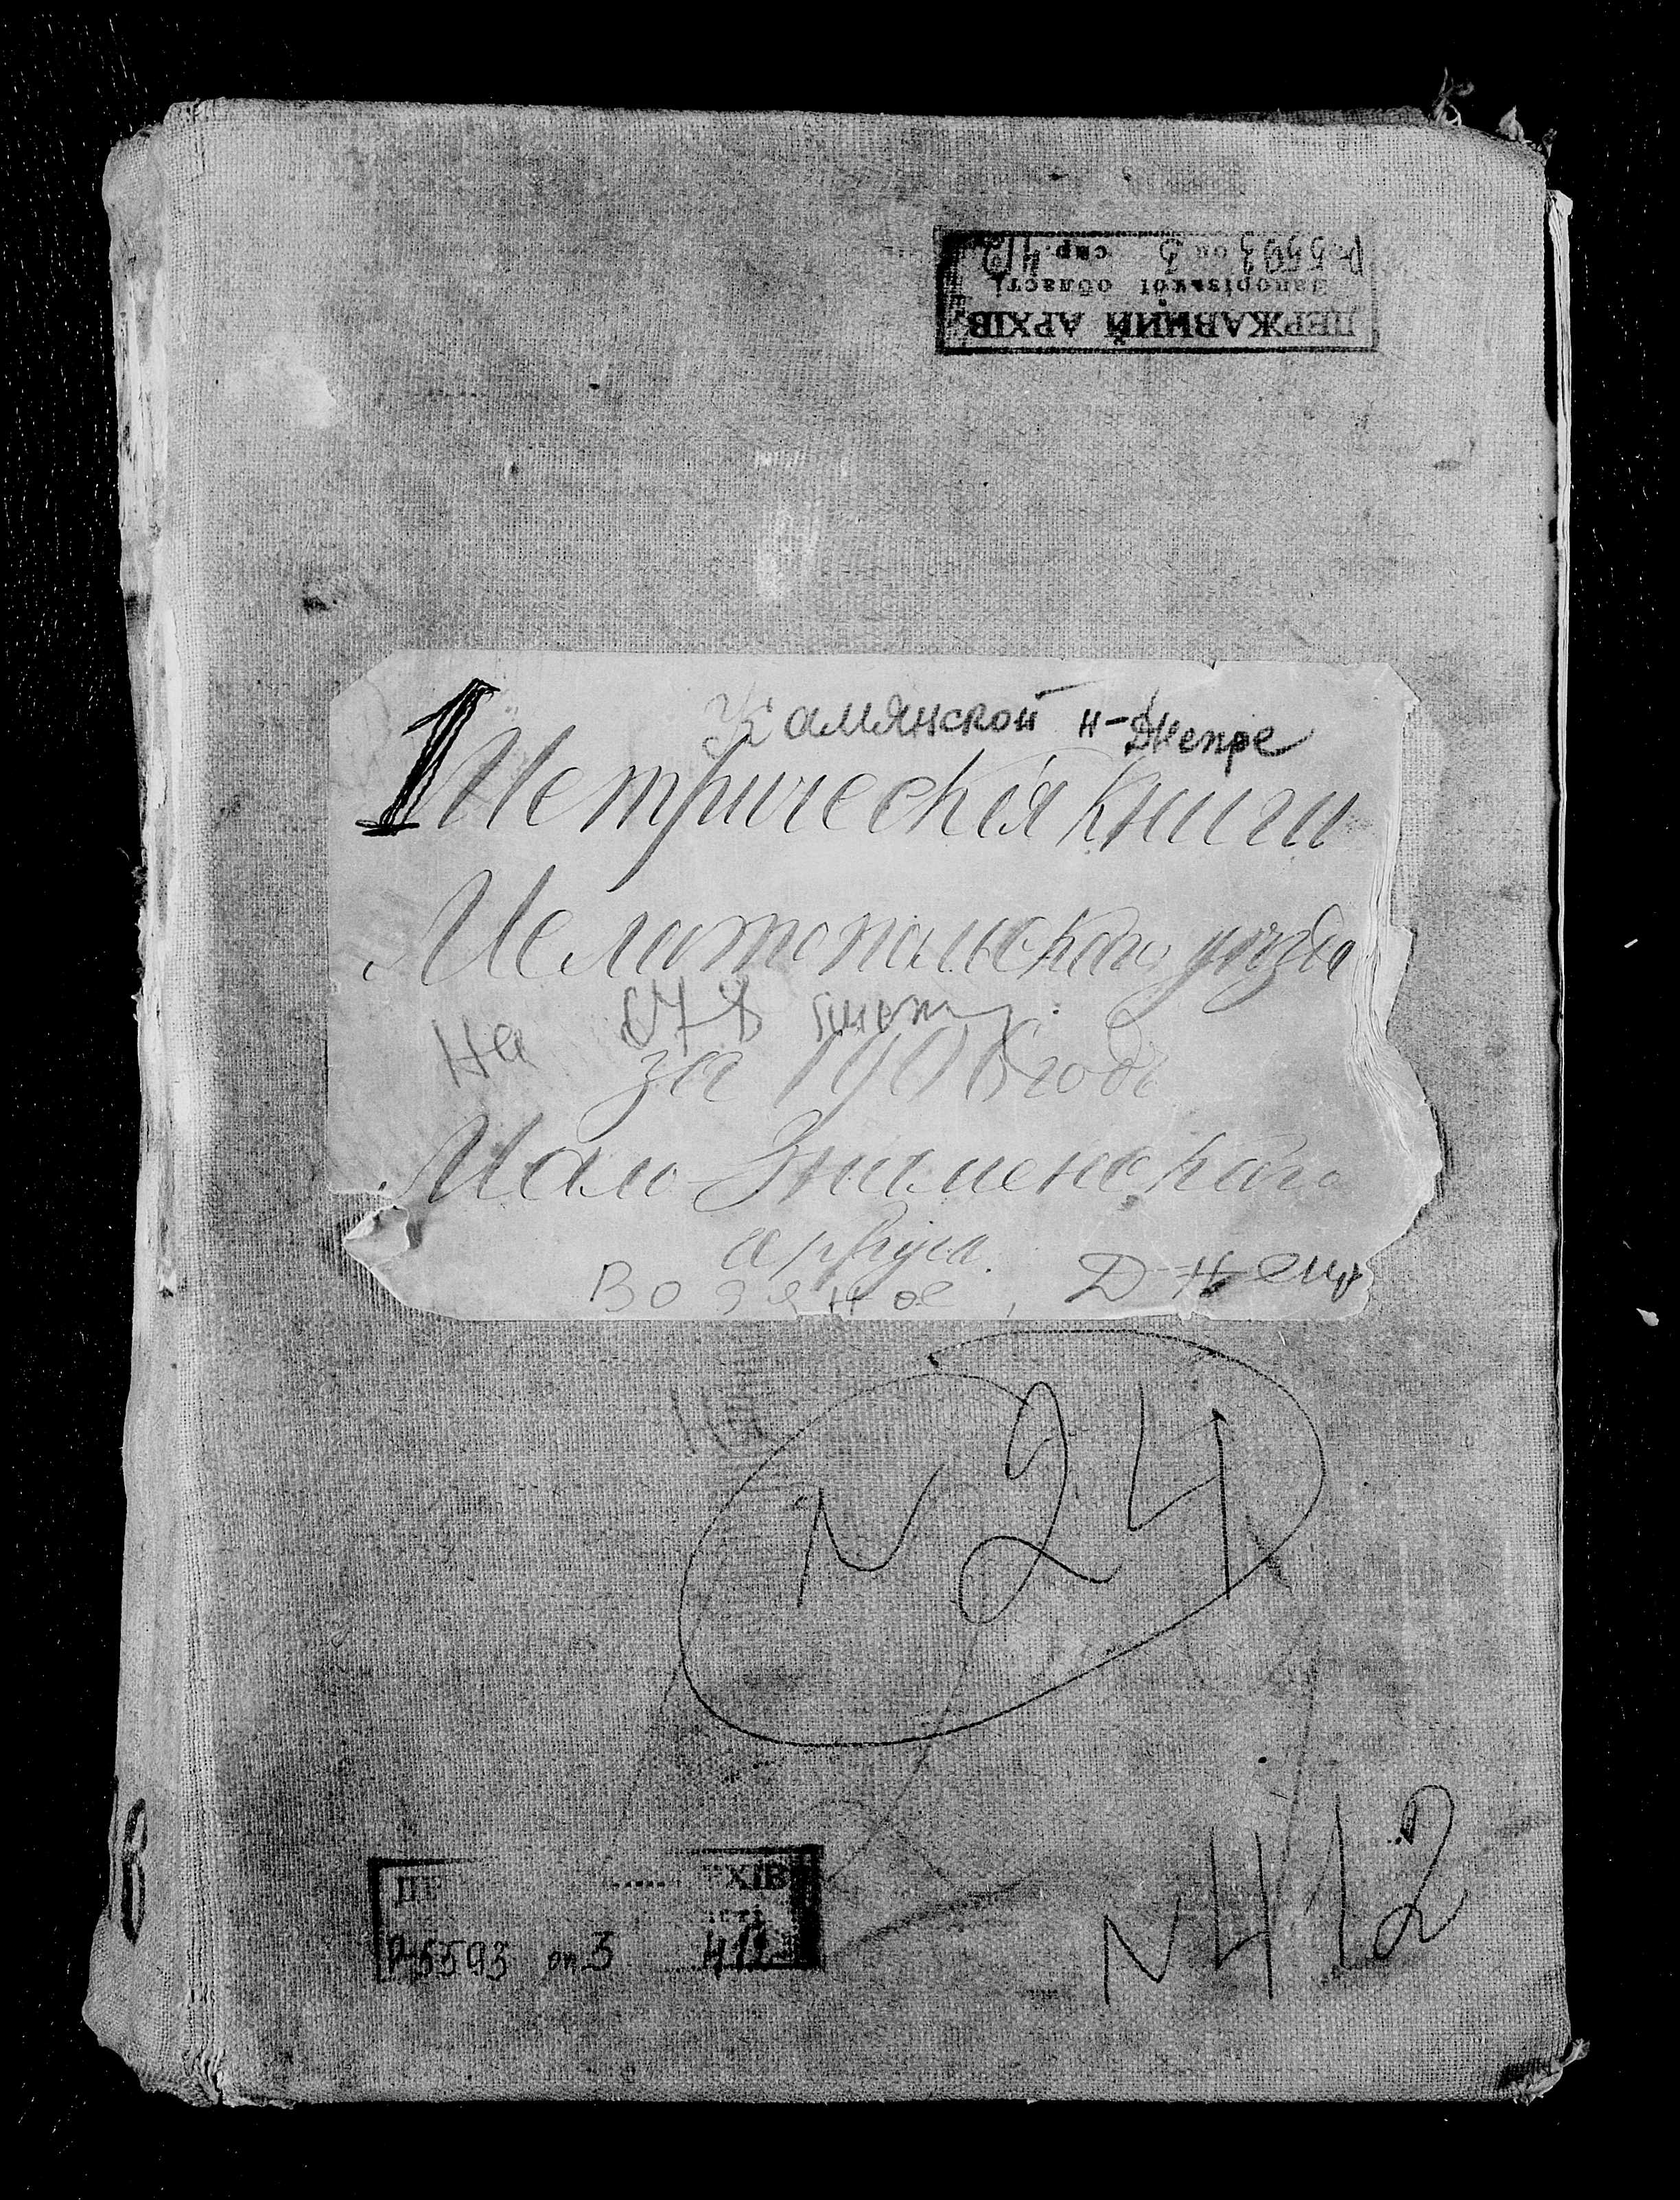 ДЕРЖАВНИЙ АРХІВ
Запорізької області
Р-5593 оп 3 спр. 412
1
Камянской н-Днепре
Метрическія книги
Мелитопольскаго уѣзда
На
за 1906 годъ
Мало-Знаменскаго
округа.
Водяное, Днепр
N 24
N 412
ХІВ
Р-5593 оп 3 412